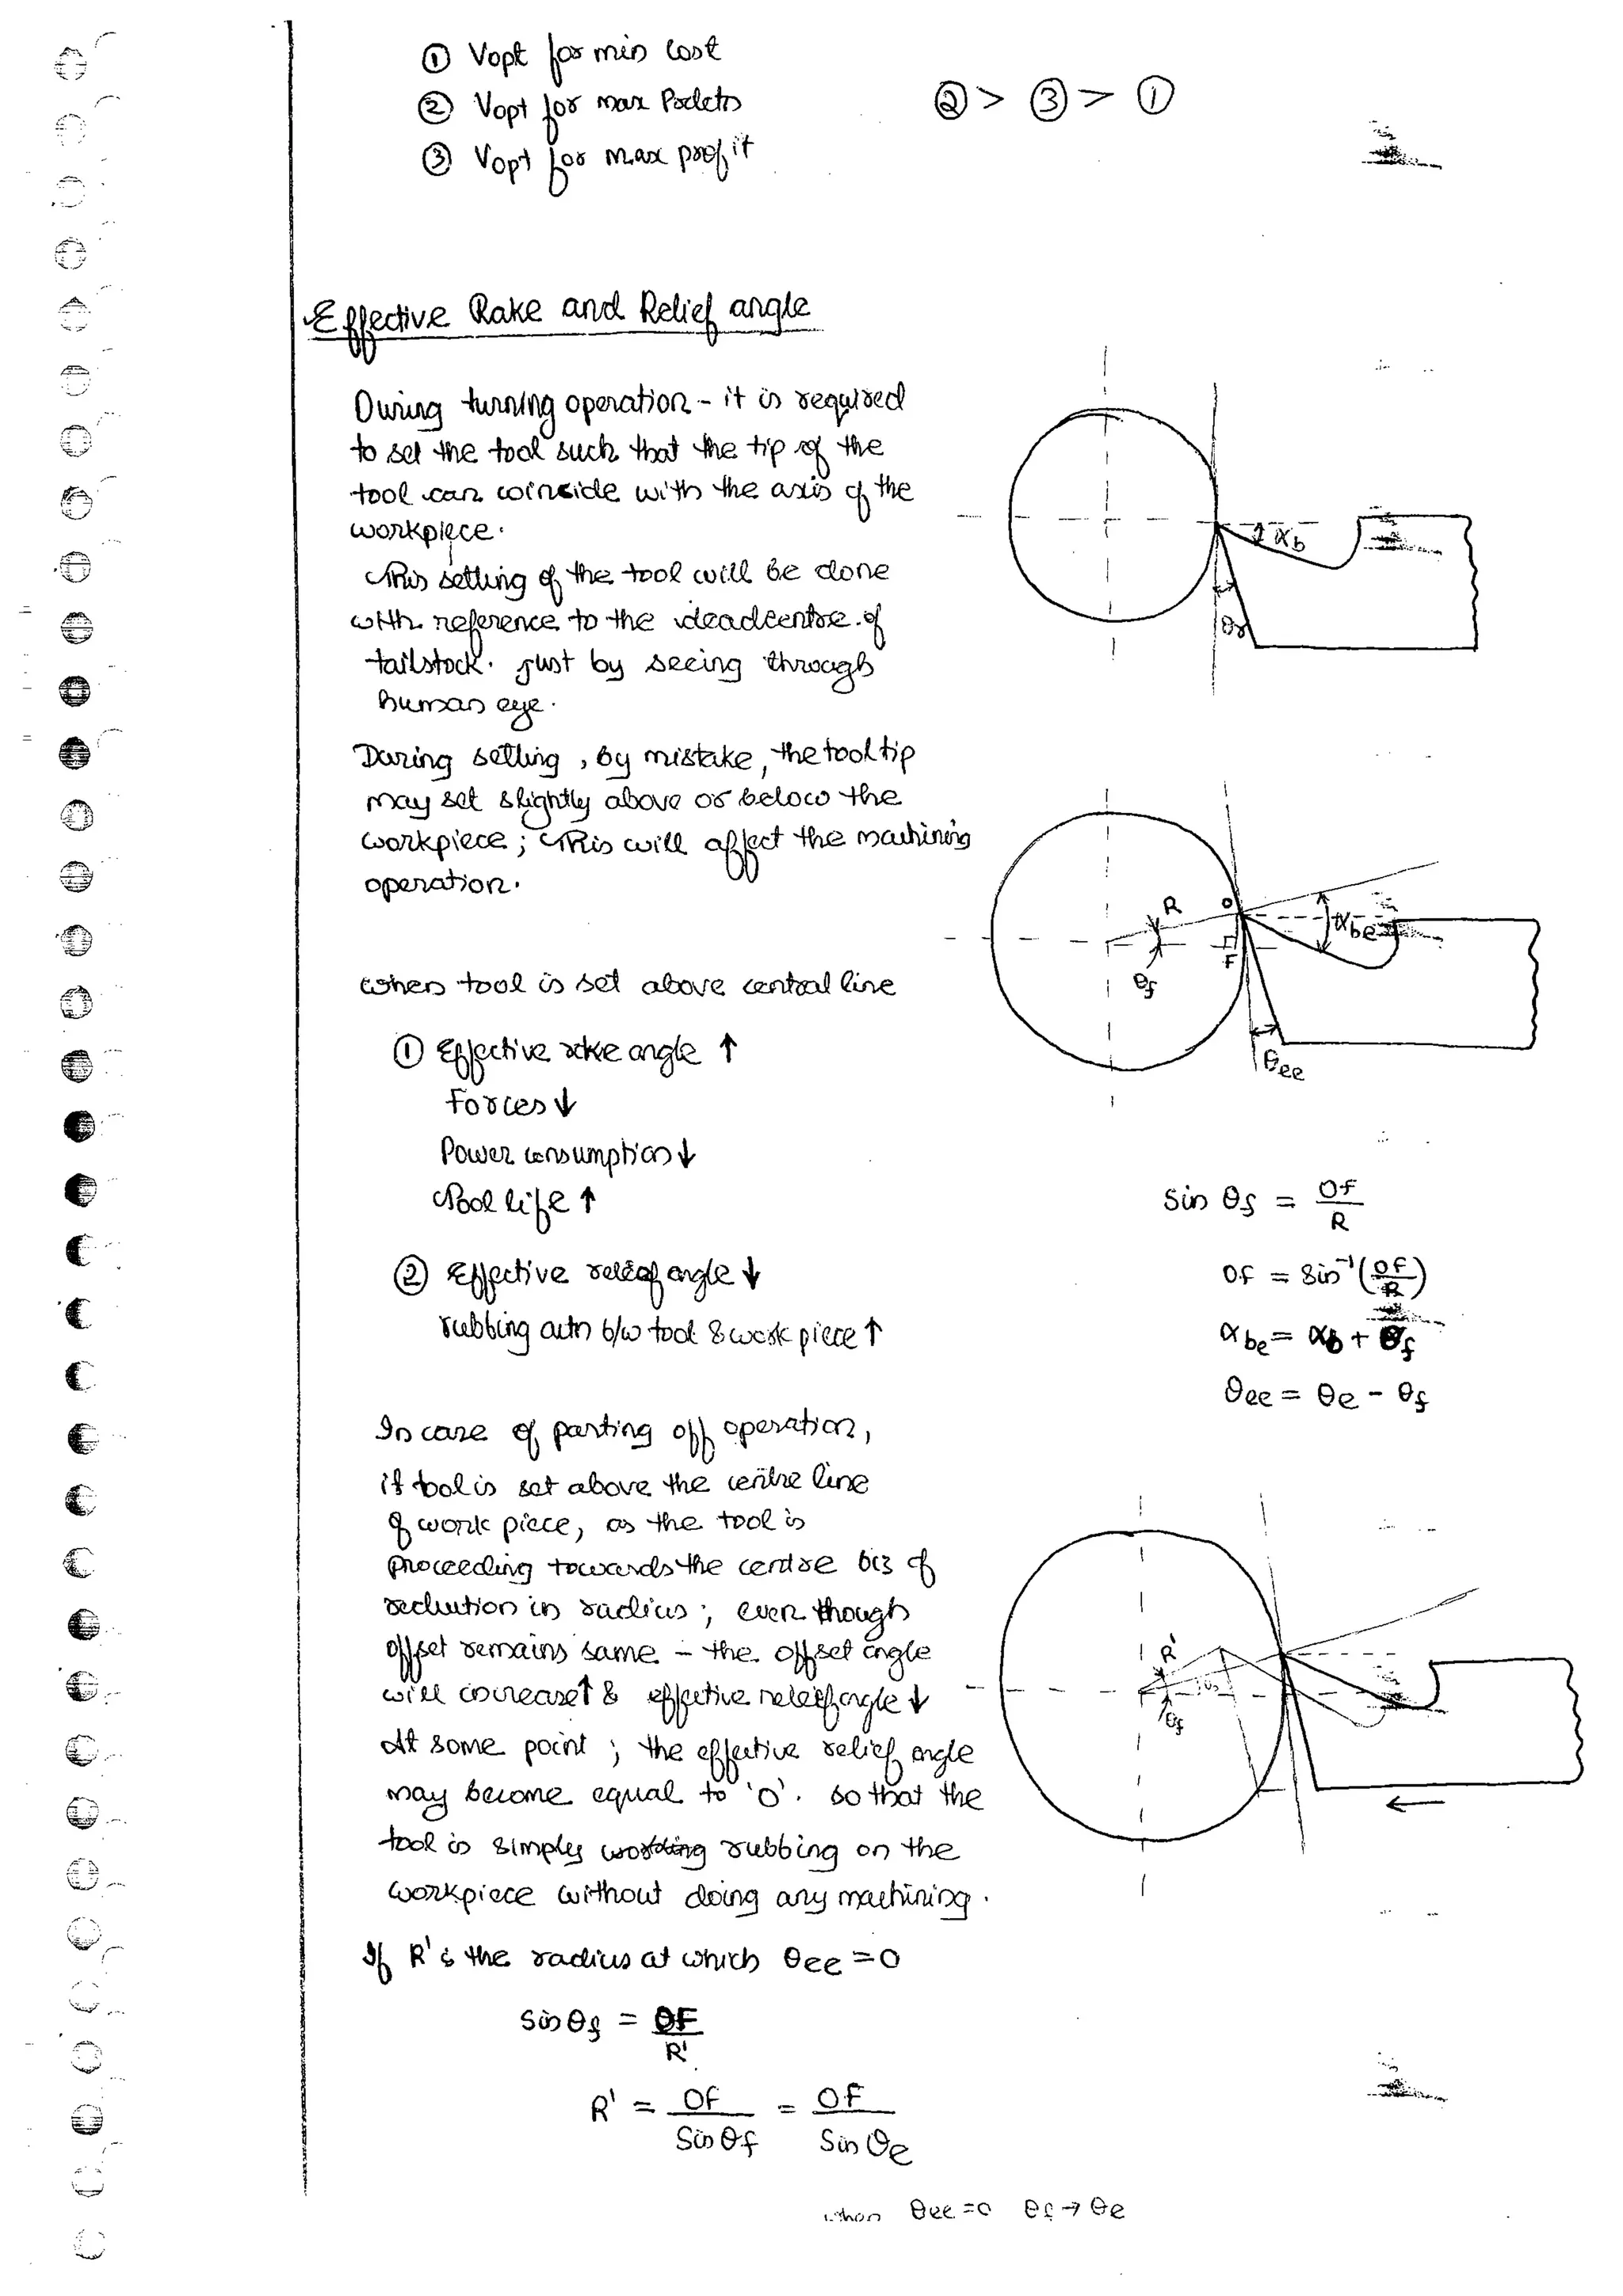 ① Vopt for min cost
② Vopt for max Prdctn
③ Vopt for max profit
② > ③ > ①
Effective Rake and Relief angle
During turning operation - it is required
to set the tool such that the tip of the
tool can coincide with the axis of the
workpiece.
This setting of the tool will be done
with reference to the deadcentre of
tailstock. just by seeing through
human eye.
During setting, by mistake, the tool tip
may set slightly above or below the
workpiece; This will affect the machining
operation.
αb
θr
When tool is set above central line
① Effective rake angle ↑
Forces ↓
Power consumption ↓
Tool life ↑
② Effective relief angle ↓
rubbing actn b/w tool & work piece ↑
R
O
F
θf
αbe
θee
Sin θf = OF/R
θf = Sin⁻¹(OF/R)
αbe = αb + θf
θee = θe - θf
In case of parting off operation,
if tool is set above the centre line
of work piece, as the tool is
proceeding towards the centre bcz of
reduction in radius; even though
offset remains same - the offset angle
will increase↑ & effective relief angle ↓
At some point; the effective relief angle
may become equal to '0'. so that the
tool is simply rubbing on the
workpiece without doing any machining.
R'
θf
If R' is the radius at which θee = 0
Sin θf = OF/R'
R' = OF/Sin θf = OF/Sin θe
when θee = 0 θf → θe